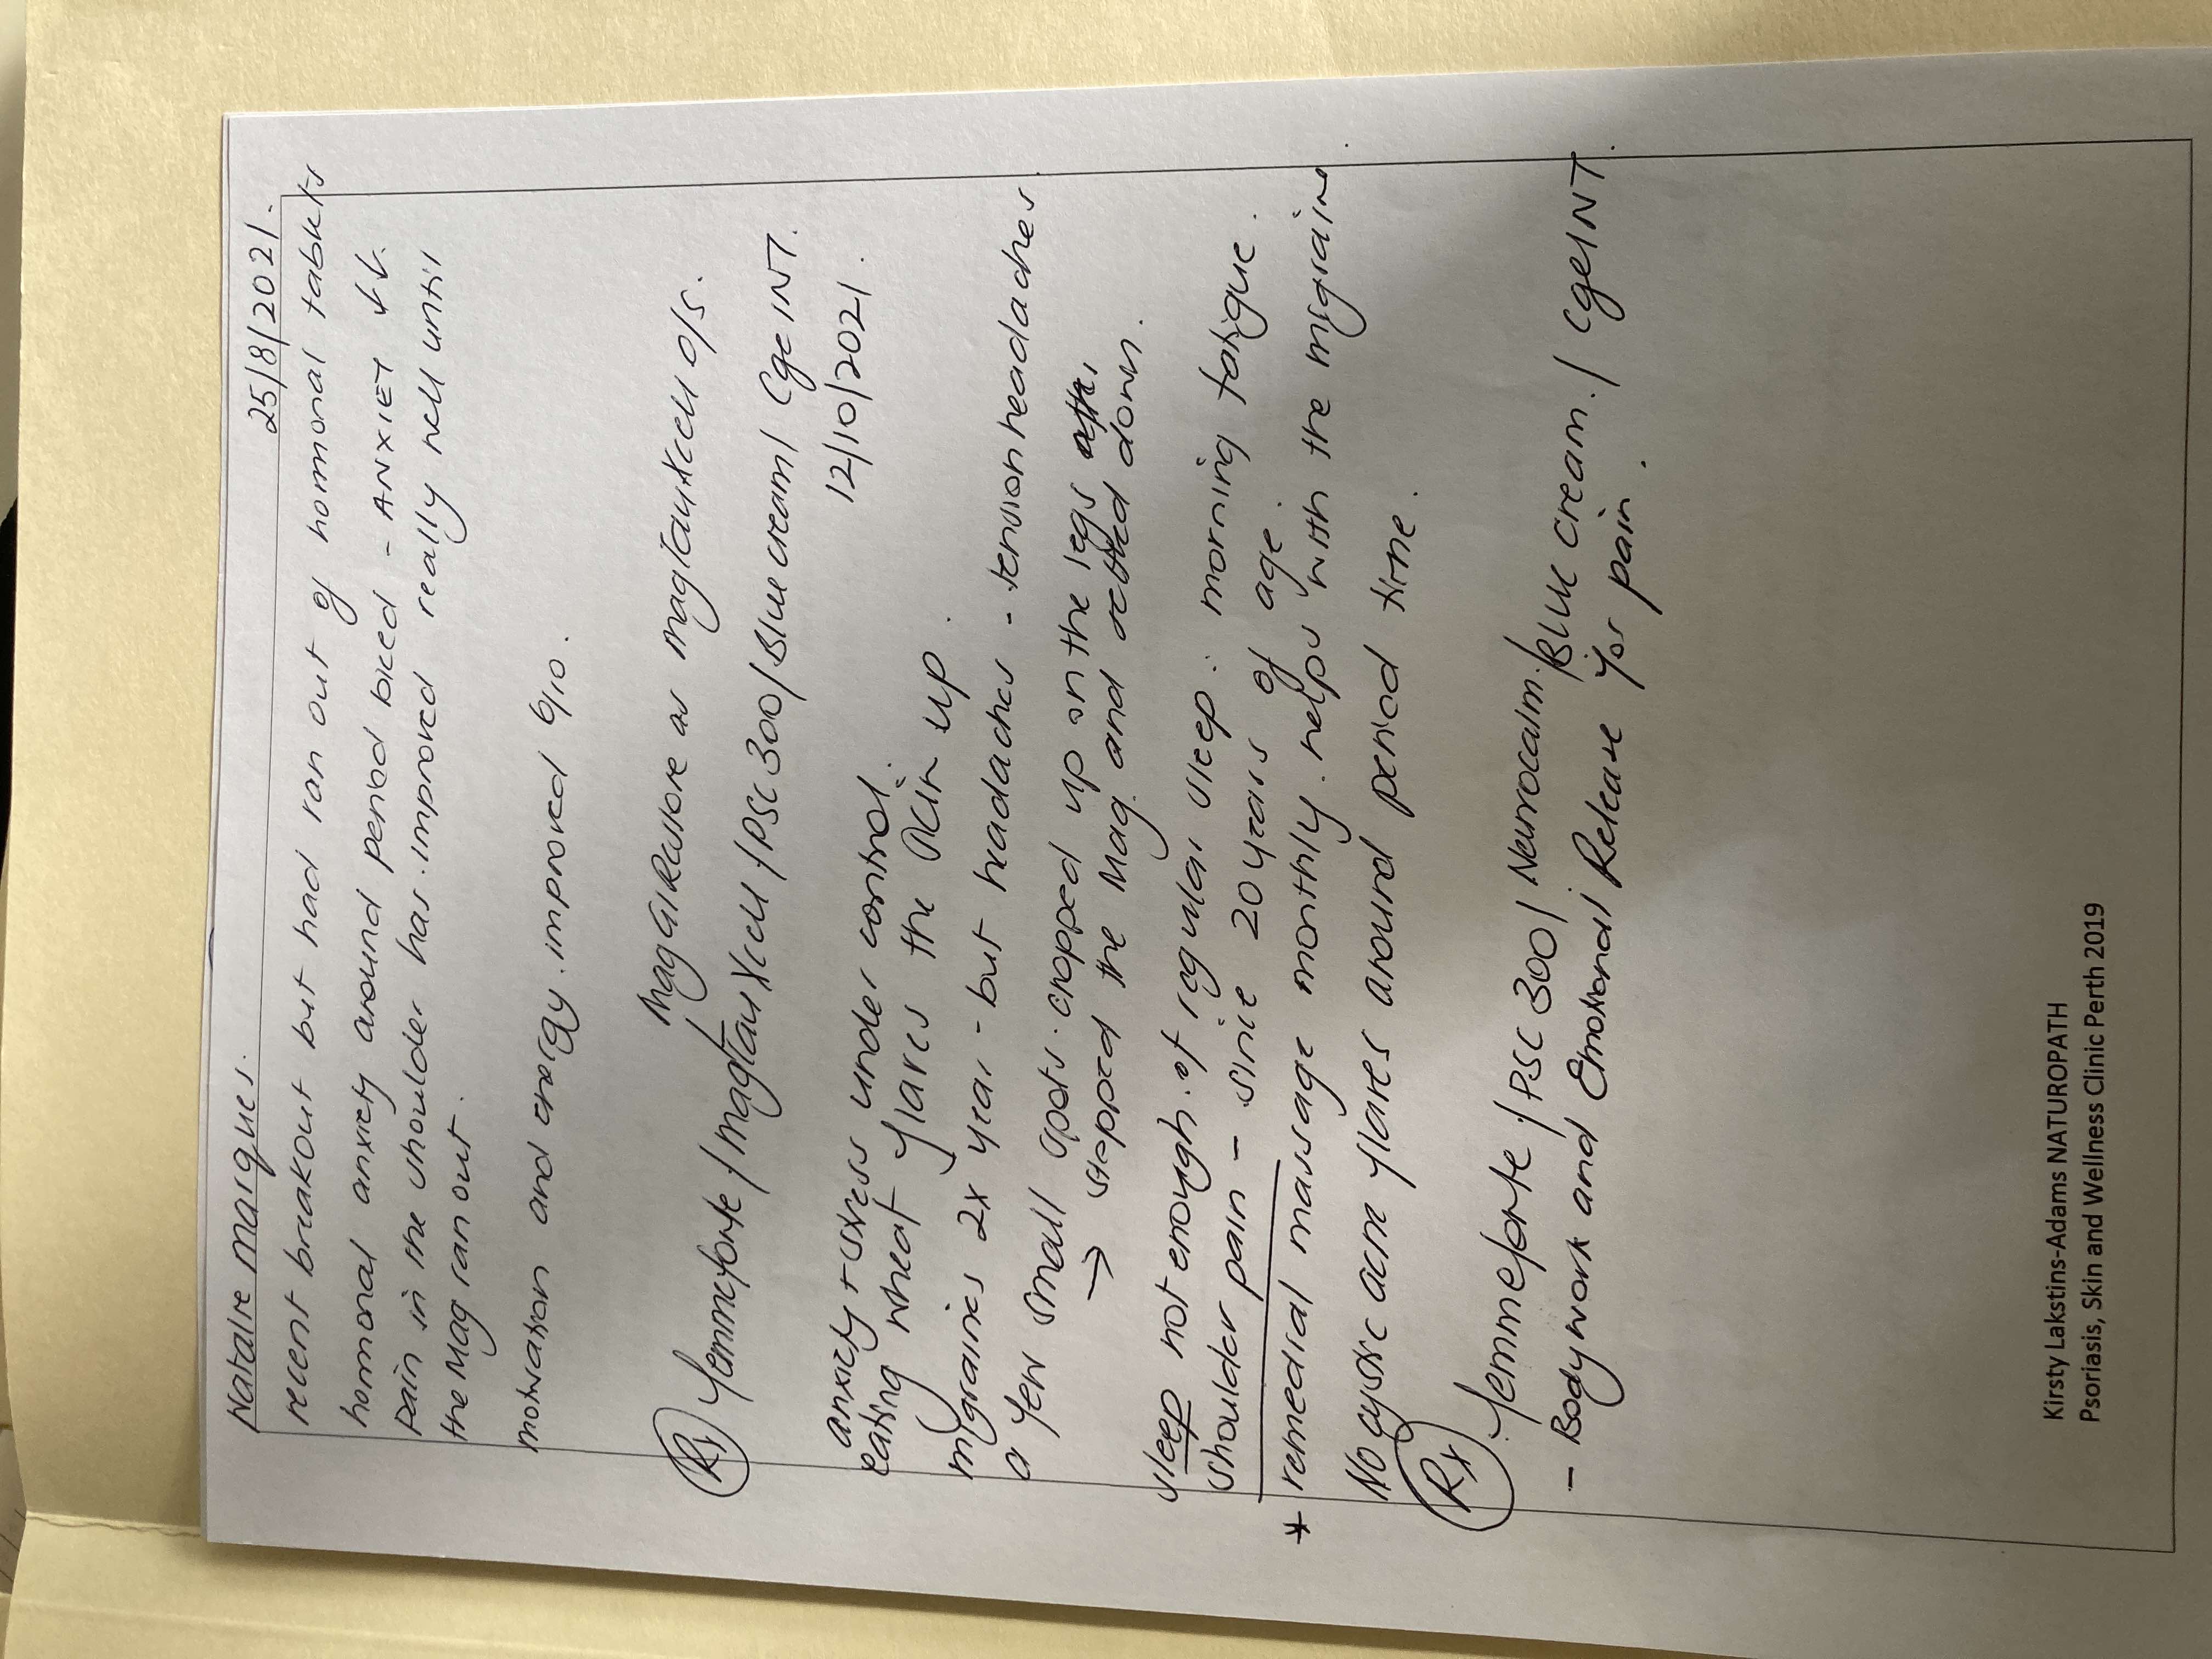 Natalie Marques. 25/8/2021.
recent breakout but had ran out of hormonal tablets
hormonal anxiety around period bleed - ANXIET ↓↓.
Pain in the shoulder has improved really well until
the Mag ran out.
motivation and energy improved 6/10.
Mag GI Restore as magTaurXcell o/s.
Rx Femmeforte / magTaurXcell / PSC 300 / Blue cream / CgeINT.
12/10/2021.
anxiety + stress under control.
eating wheat flares the skin up.
migraines 2x year - but headaches - tension headaches.
a few small spots. cropped up on the legs
→ stopped the Mag. and settled down.
sleep not enough. of regular sleep. morning fatigue.
shoulder pain - since 20 years of age.
* remedial massage monthly. helps with the migraine.
No cystic acne flares around period time.
Rx Femmeforte / PSC 300 / Neurocalm. / Blue cream. / CgeINT.
- Bodywork and Emotional Release for pain.
Kirsty Lakstins-Adams NATUROPATH
Psoriasis, Skin and Wellness Clinic Perth 2019